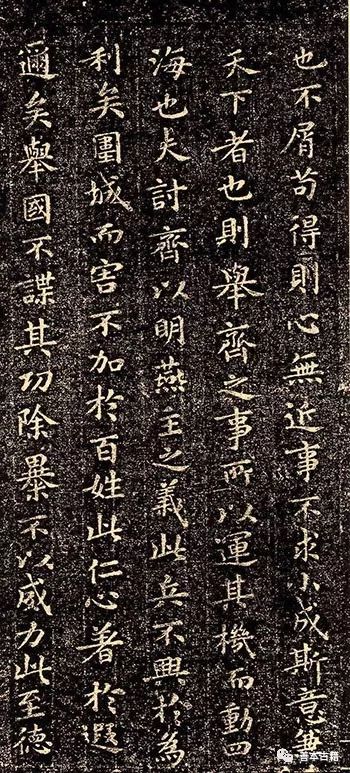 也不屑苟得則心無近事不求小成斯意兼
天下者也則舉齊之事所以運其機而動四
海也夫討齊以明燕主之義此兵不興於為
利矣圍城而害不加於百姓此仁心著於遐
邇矣舉國不謀其功除暴不以威力此至德
善本古籍